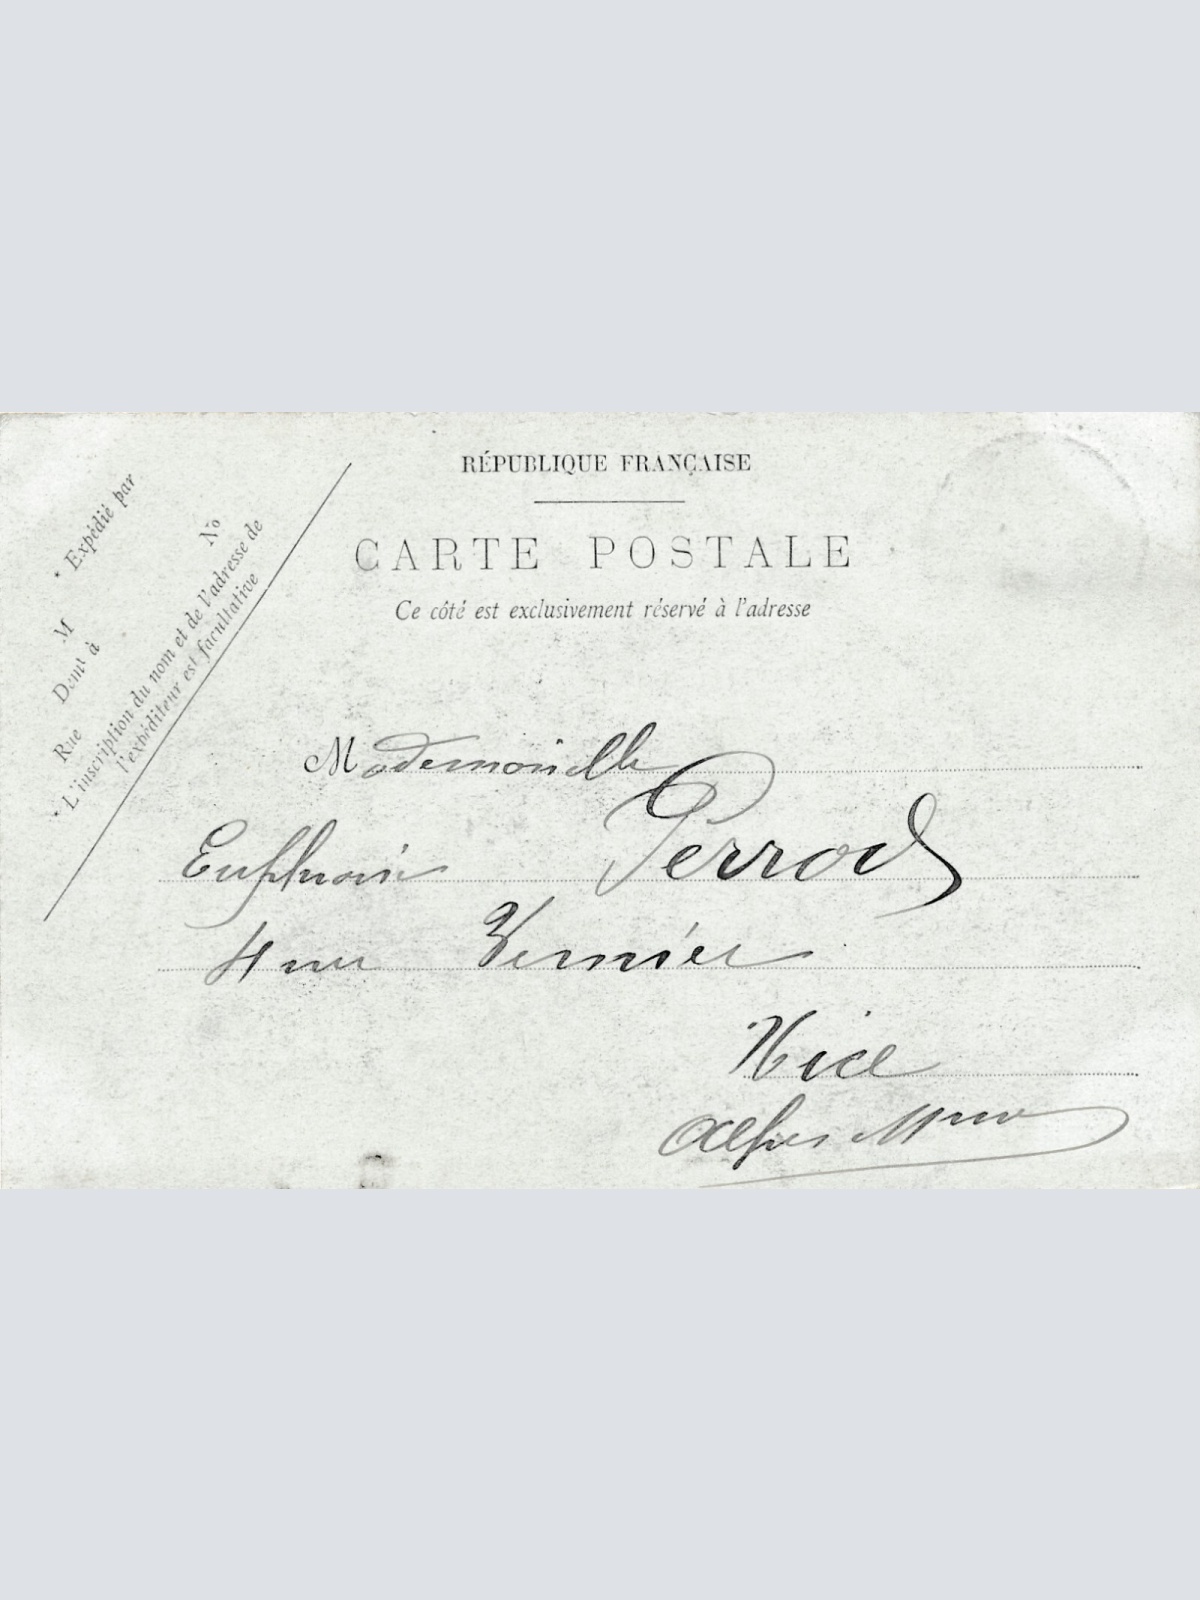 RÉPUBLIQUE FRANÇAISE
CARTE POSTALE
Ce côté est exclusivement réservé à l'adresse
* Expédié par
M
Dem<sup></sup> à
Rue No
* L'inscription du nom et de l'adresse de
l'expéditeur est facultative
Mademoiselle
Euphrasie Perrod
4 rue Vernier
Nice
Alpes Mmes